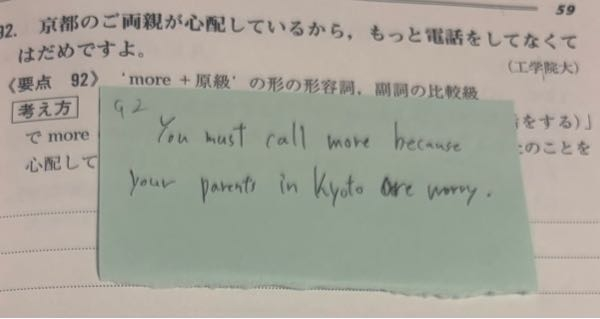 59
92. 京都のご両親が心配しているから，もっと電話をしてなくて
はだめですよ。
(工学院大)
《要点 92》 'more + 原級' の形の形容詞，副詞の比較級
考え方
をする)」
で more
たのことを
心配して
92
You must call more because
your parents in Kyoto are worry.